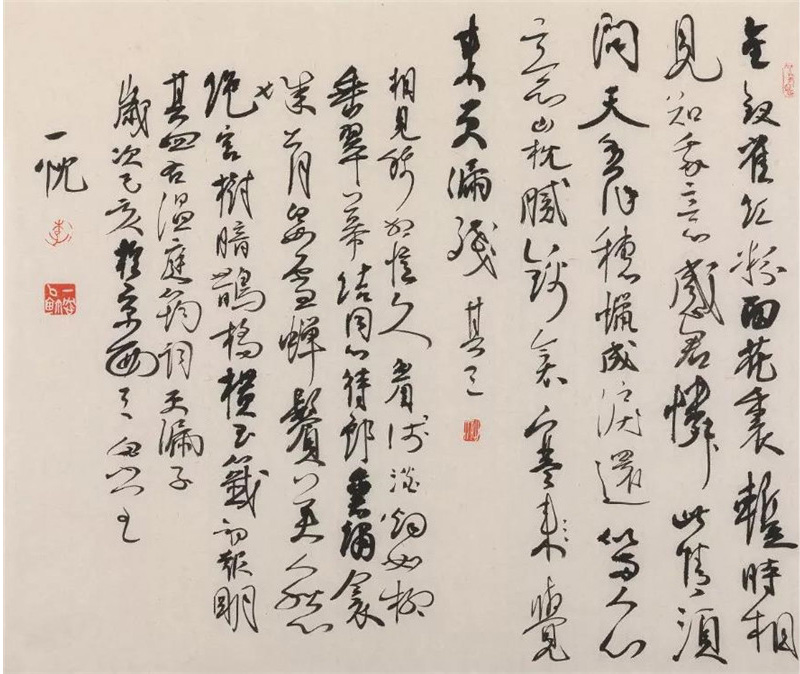 金釵雀紅粉面花裏暫時相
見知我意感君憐此情須
問天香作穗蠟成淚還似兩人心
意山枕膩錦衾寒來覺
來更漏殘 其三
相見稀相憶久眉淺淡烟如柳
垂翠幕結同心待郎熏繡衾
城上月白如雪蟬鬢美人愁
絕宮樹暗鵲橋橫玉籤初報明
其四右溫庭筠詞更漏子
歲次己亥於京西
一忱
李